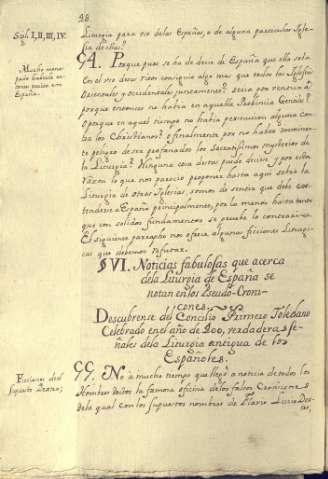 98
Sul. I, II, III, IV.
Liturgia para uso delas Españas, o de alguna particular Igle-
sia de ellas?
94. Porque pues se ha de decir de España que ella sola
Oriental y Occidental juntamente? sería por ventura
porque entonces no había en aquella Provincia Gentiles?
O porque en aquel tiempo no había persecucion alguna con-
tra los Christianos? o finalmente por no haber
peligro de ser profanados los Sacratissimos mysterios de
la Liturgia? Ninguna cosa destas puede decirse y por esta
razon lo que nos parecio proponer hasta aqui sobre la
Liturgia de otras Iglesias, somos de sentir que debe en-
tenderse de España principalmente, por lo menos hasta tanto
que con solidos fundamentos se pruebe lo contrario.
El siguiente parapho nos ofrece algunas ficciones Liturgi-
cas que debemos refutar.
§ VI. Noticias fabulosas que acerca
dela Liturgia de España se
notan enlos Pseudo-Croni-
cones.
Descubrense del Concilio Primero Toledano
Celebrado en el año de 400, verdaderas se-
ñales dela Liturgia antigua de los
Españoles.
Ficciones del
supuesto Dextro;
95. No à mucho tiempo que llegó a noticia de todos los
Hombres doctos la famosa oficina de los falsos Cronicones,
dela qual con los supuestos nombres de Flavio Lucio Dex-
tro,